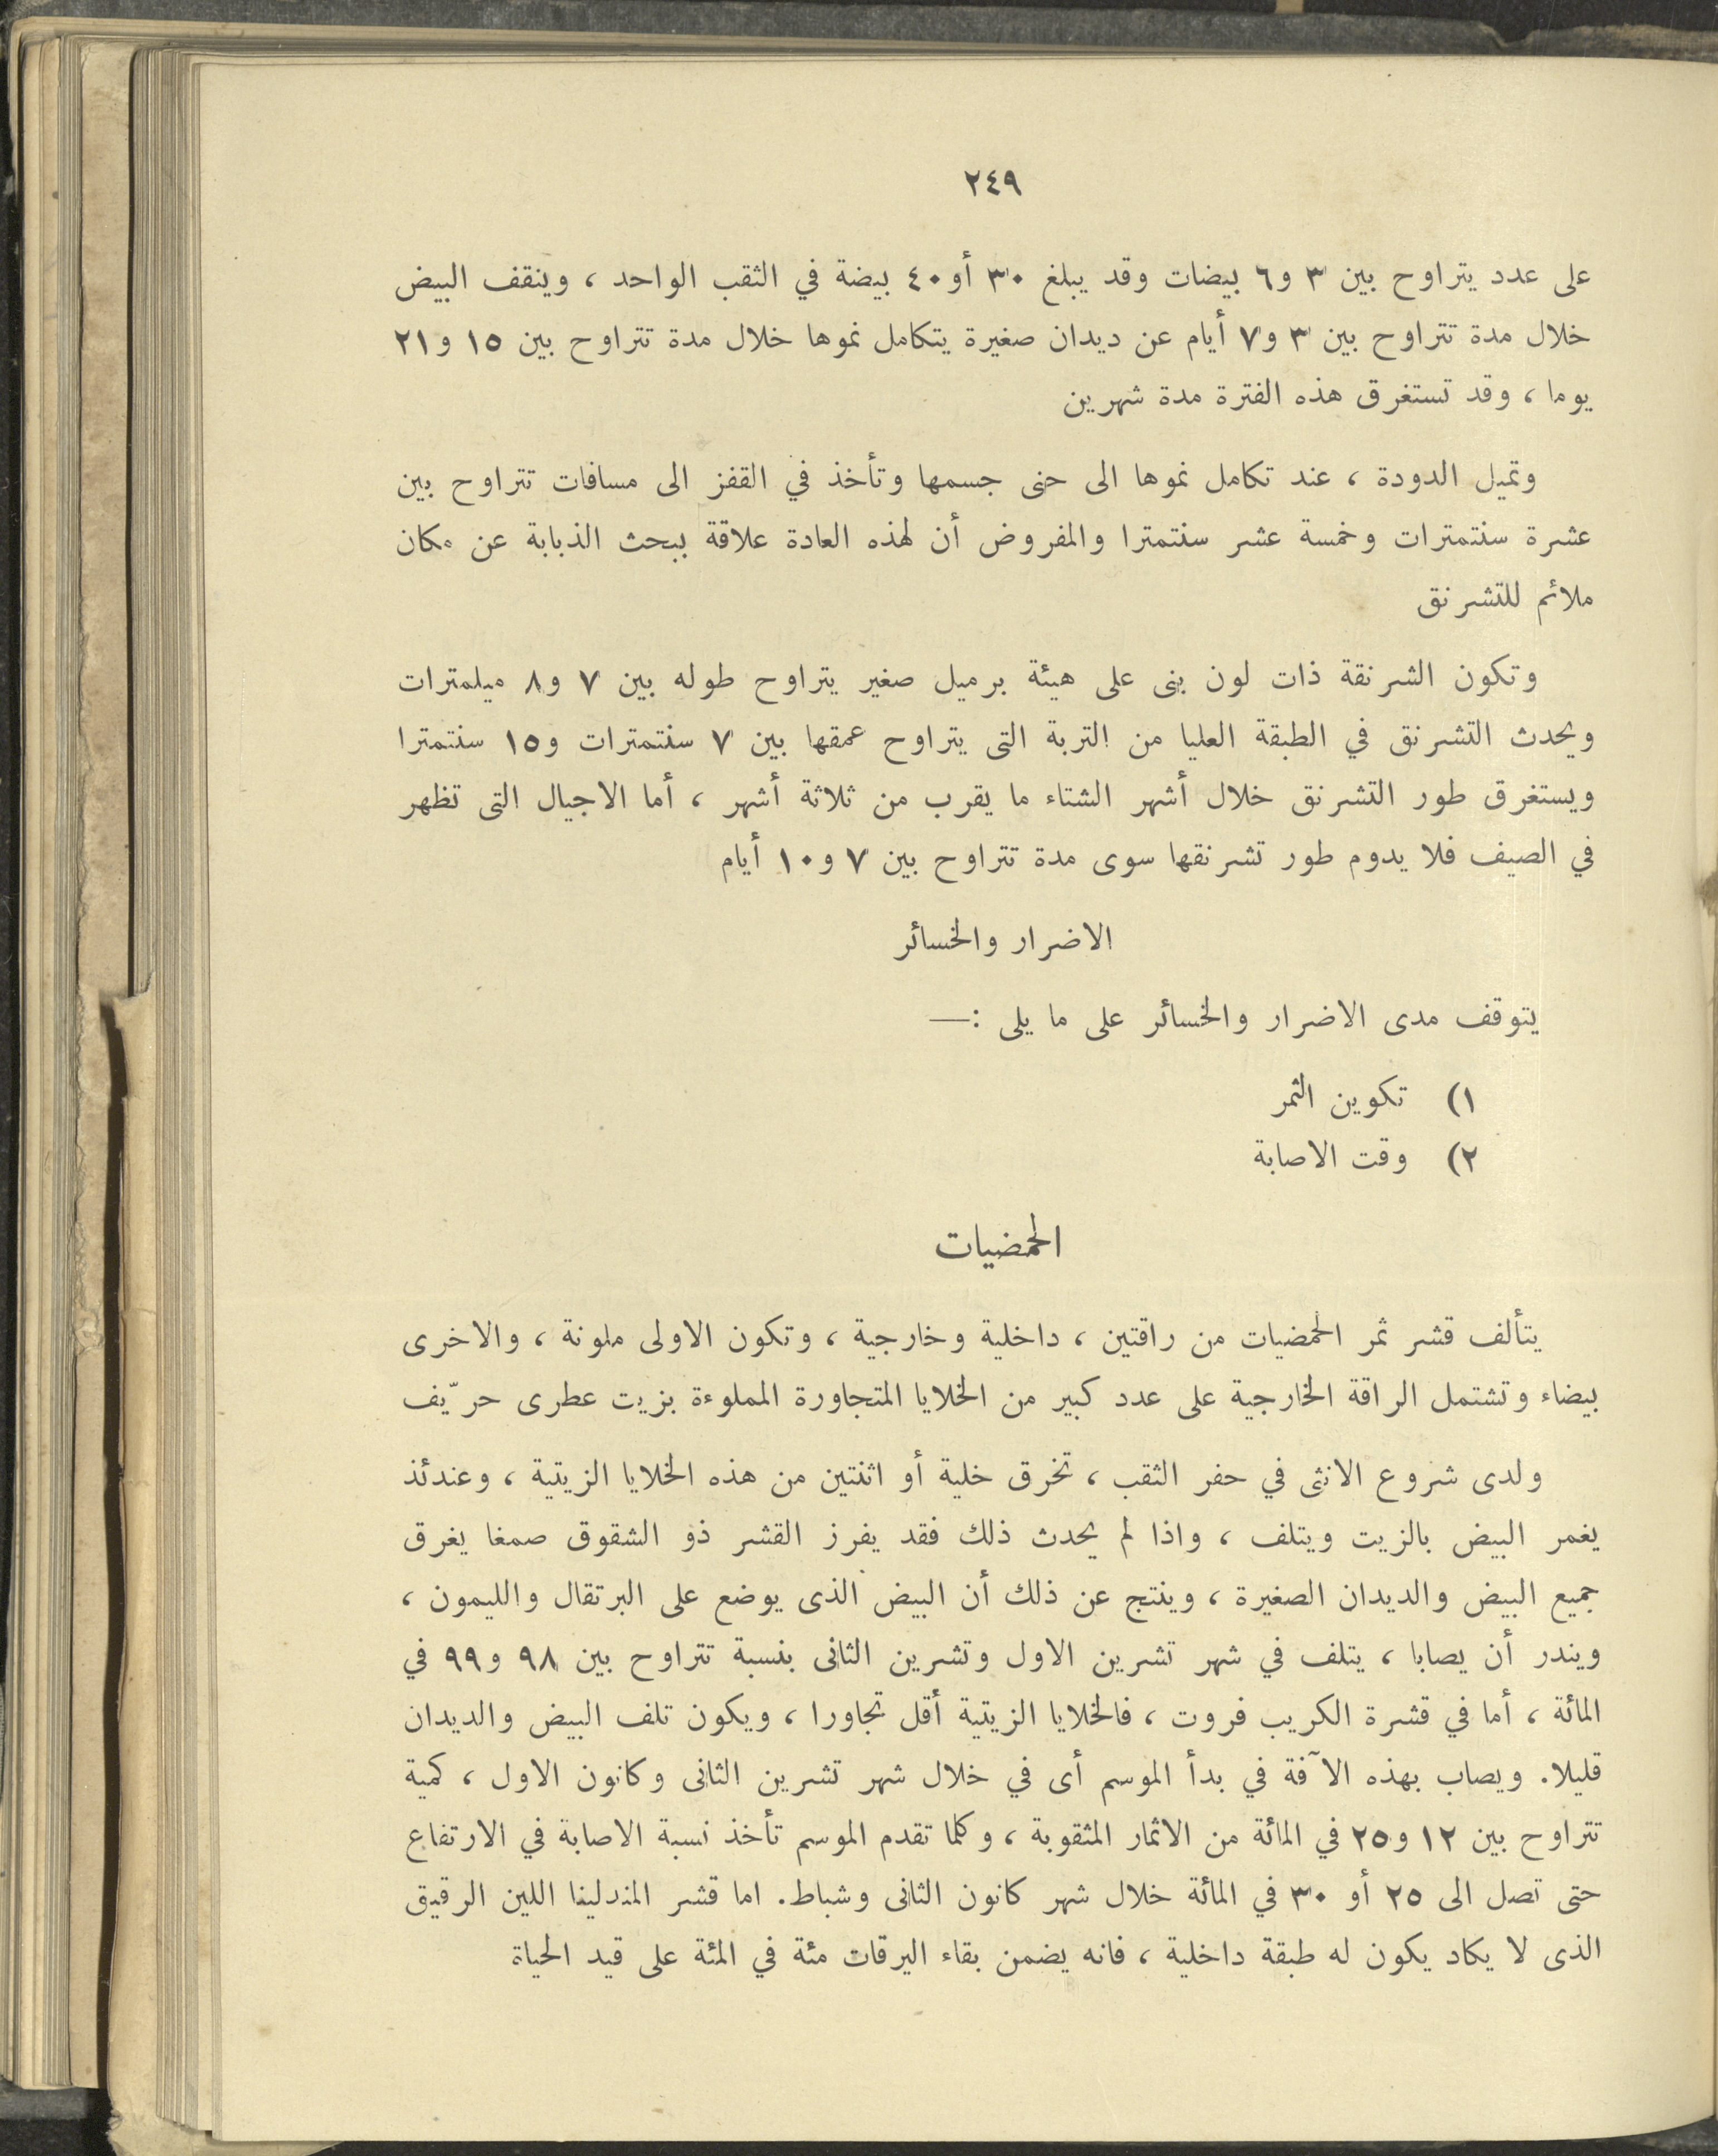 ٢٤٩
على عدد يتراوح بين ٣ و٦ بيضات وقد يبلغ ٣٠ أو ٤٠ بيضة في الثقب الواحد ، وينقف البيض
خلال مدة تتراوح بين ٣ و٧ أيام عن ديدان صغيرة يتكامل نموها خلال مدة تتراوح بين ١٥ و٢١
يوما ، وقد تستغرق هذه الفترة مدة شهرين
وتميل الدودة ، عند تكامل نموها الى حنى جسمها وتأخذ في القفز الى مسافات تتراوح بين
عشرة سنتمترات وخمسة عشر سنتمترا والمفروض أن لهذه العادة علاقة ببحث الذبابة عن مكان
ملائم للتشرنق
وتكون الشرنقة ذات لون بنى على هيئة برميل صغير يتراوح طوله بين ٧ و٨ ميلمترات
ويحدث التشرنق في الطبقة العليا من التربة التى يتراوح عمقها بين ٧ سنتمترات و١٥ سنتمترا
ويستغرق طور التشرنق خلال أشهر الشتاء ما يقرب من ثلاثة أشهر ، أما الاجيال التى تظهر
في الصيف فلا يدوم طور تشرنقها سوى مدة تتراوح بين ٧ و١٠ أيام
الاضرار والخسائر
يتوقف مدى الاضرار والخسائر على ما يلى :—
١) تكوين الثمر
٢) وقت الاصابة
الحمضيات
يتألف قشر ثمر الحمضيات من راقتين ، داخلية وخارجية ، وتكون الاولى ملونة ، والاخرى
بيضاء وتشتمل الراقة الخارجية على عدد كبير من الخلايا المتجاورة المملوءة بزيت عطرى حرّيف
ولدى شروع الانثى في حفر الثقب ، تخرق خلية أو اثنتين من هذه الخلايا الزيتية ، وعندئذ
يغمر البيض بالزيت ويتلف ، واذا لم يحدث ذلك فقد يفرز القشر ذو الشقوق صمغا يغرق
جميع البيض والديدان الصغيرة ، وينتج عن ذلك أن البيض الذى يوضع على البرتقال والليمون ،
ويندر أن يصابا ، يتلف في شهر تشرين الاول وتشرين الثانى بنسبة تتراوح بين ٩٨ و٩٩ في
المائة ، أما في قشرة الكريب فروت ، فالخلايا الزيتية أقل تجاورا ، ويكون تلف البيض والديدان
قليلا. ويصاب بهذه الآفة في بدأ الموسم أى في خلال شهر تشرين الثانى وكانون الاول ، كمية
تتراوح بين ١٢ و٢٥ في المائة من الاثمار المثقوبة ، وكلما تقدم الموسم تأخذ نسبة الاصابة في الارتفاع
حتى تصل الى ٢٥ أو ٣٠ في المائة خلال شهر كانون الثانى وشباط. اما قشر المندلينا اللين الرقيق
الذى لا يكاد يكون له طبقة داخلية ، فانه يضمن بقاء اليرقات مئة في المئة على قيد الحياة